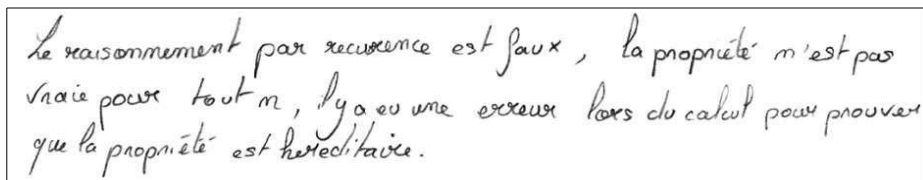 Le raisonnement par recurence est faux, la propriété n'est pas
vraie pour tout n, il y a eu une erreur lors du calcul pour prouver
que la propriété est hereditaire.